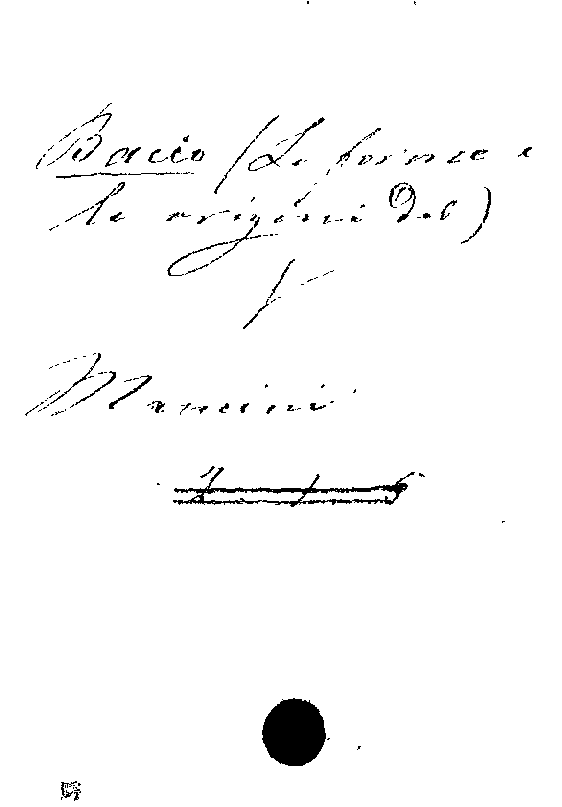 Bacio (Le forme e
le origini del)
Mancini